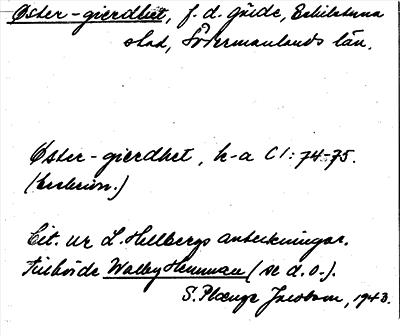 Öster-gierdhet, f.d. gärde, Eskilstuna
stad, Södermanlands län.
Öster-gierdhet, k-a C1:74-75.
Cit. ur L. Hellbergs anteckningar.
Tillhörde Walby Hemman (se d.o.).
S. Jacobson, 1943.